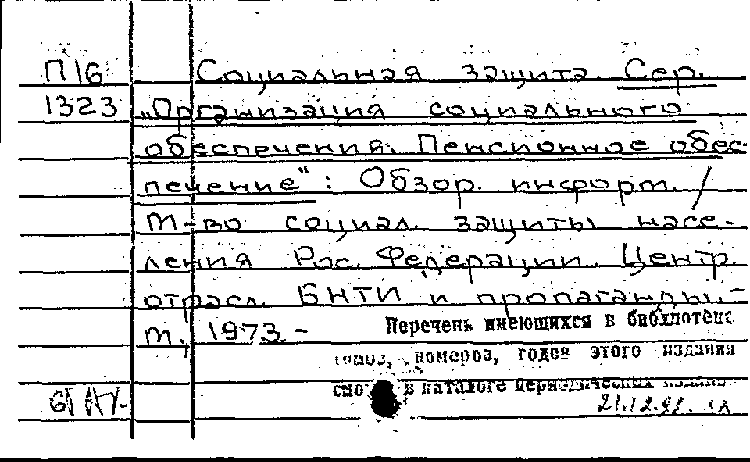 П16 Социальная защита. Сер.
1323 „Организация социального
обеспечения. Пенсионное обес-
печение": Обзор. информ. /
М-во социал. защиты насе-
ления Рос. Федерации. Центр.
отрасл. БНТИ и пропаганды. -
М., 1973 -
Перечень имеющихся в библиотеке
томов, номеров, годов этого издания
в каталоге периодических
21.12.92.